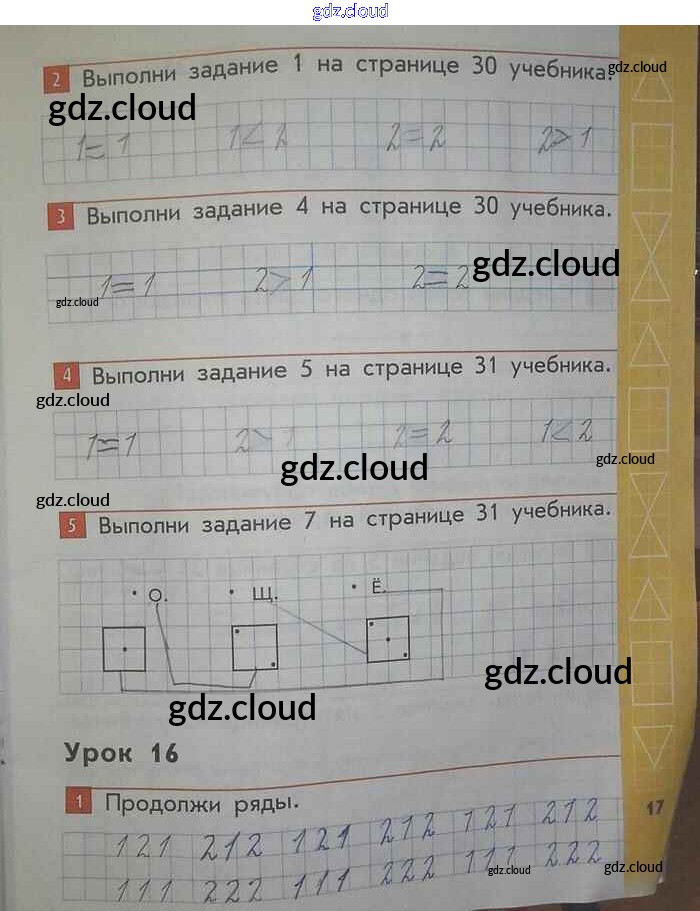 gdz.cloud
2 Выполни задание 1 на странице 30 учебника.
gdz.cloud
gdz.cloud
1=1 1<2 2=2 2>1
3 Выполни задание 4 на странице 30 учебника.
gdz.cloud
1=1 2>1 2=2
gdz.cloud
4 Выполни задание 5 на странице 31 учебника.
gdz.cloud
1=1 2>1 2=2 1<2
gdz.cloud
gdz.cloud
gdz.cloud
5 Выполни задание 7 на странице 31 учебника.
• О. • Щ. • Ё.
gdz.cloud
gdz.cloud
Урок 16
1 Продолжи ряды.
17
121 212 121 212 121 212
111 222 111 222 111 222
gdz.cloud
gdz.cloud